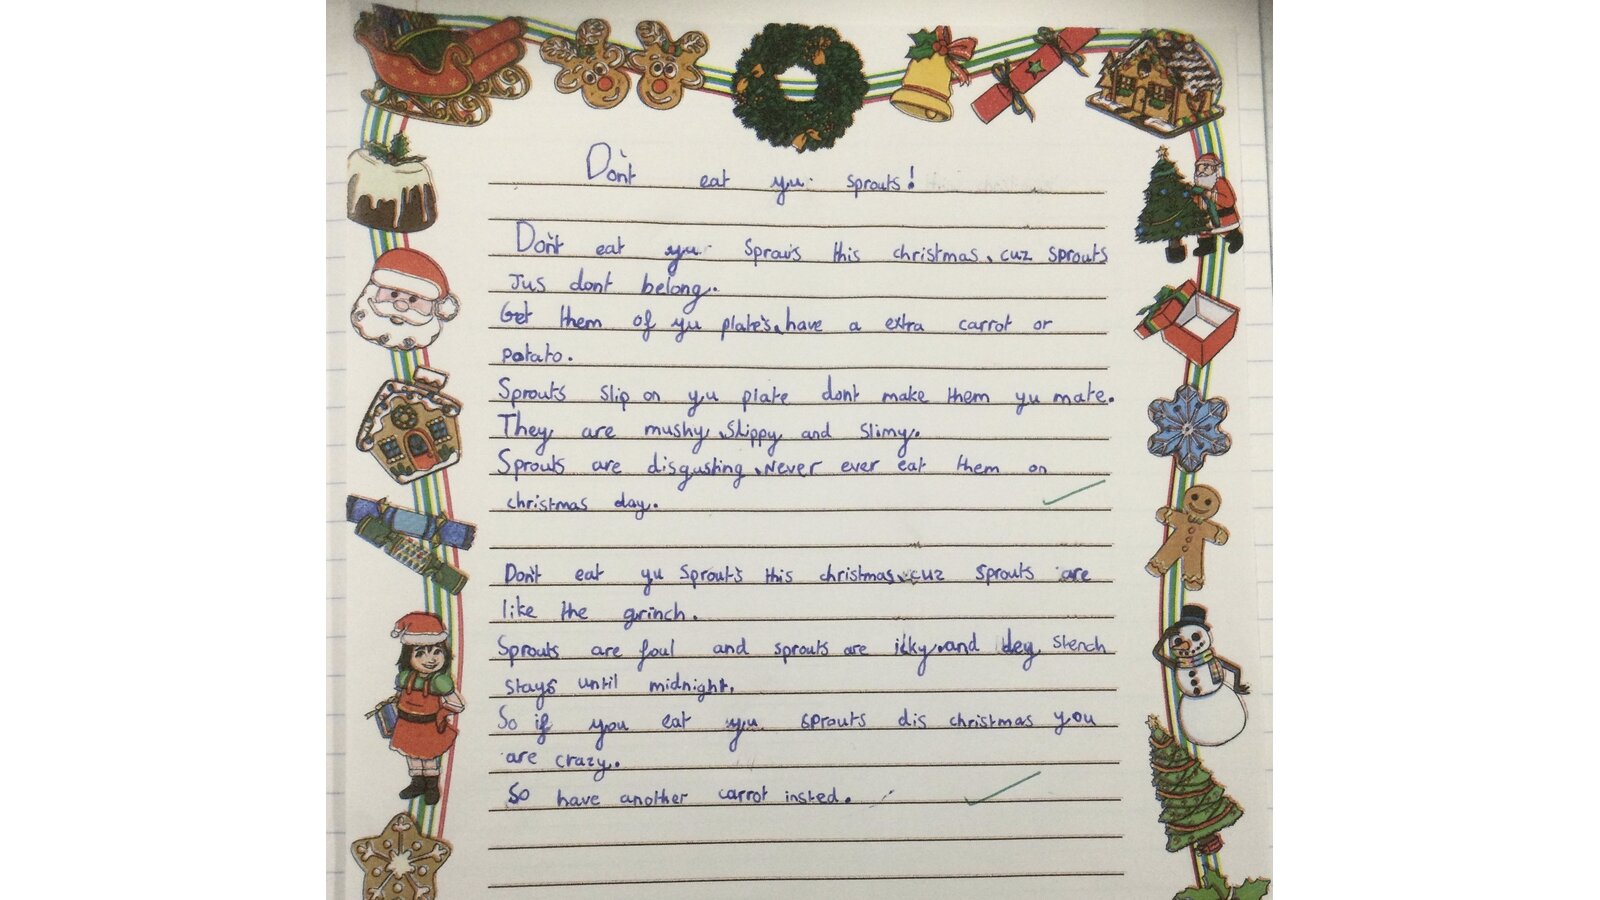 Don't eat yu sprouts!
Don't eat yu Sprouts this christmas, cuz sprouts
Jus dont belong.
Get them of yu plate's, have a extra carrot or
potato.
Sprouts slip on yu plate dont make them yu mate.
They are mushy, Slippy and slimy.
Sprouts are disgusting, Never ever eat them on
christmas day.
Don't eat yu Sprout's this christmas, cuz sprouts are
like the grinch.
Sprouts are foul and sprouts are ikky, and dey stench
stays until midnight.
So if you eat yu sprouts dis christmas you
are crazy.
So have another carrot insted.